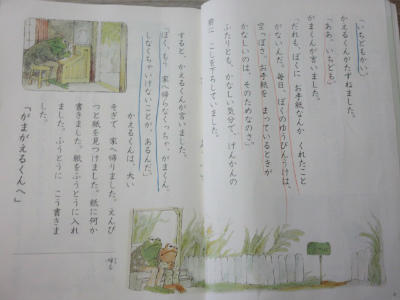 「いちどもかい。」
かえるくんがたずねました。
「ああ。いちども。」
がまくんが言いました。
「だれも、ぼくに お手紙なんか くれたこと
がないんだ。毎日、ぼくのゆうびんうけは、
空っぽさ。お手紙を まっているときが
かなしいのは、そのためなのさ。」
ふたりとも、かなしい気分で、げんかんの
前に こしを下ろしていました。
すると、かえるくんが言いました。
「ぼく、もう 家へ帰らなくっちゃ、がまくん。
しなくちゃいけないことが、あるんだ。」
かえるくんは、大い
そぎで 家へ帰りました。えんぴ
つと紙を見つけました。紙に何か
書きました。紙をふうとうに入れ
ました。ふうとうに こう書きま
した。
「がまがえるくんへ」
帰る